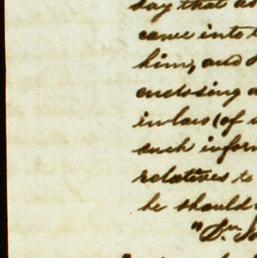 say that as
came into
him, and
enclosing
in law (of
such inform
relatives to
he should